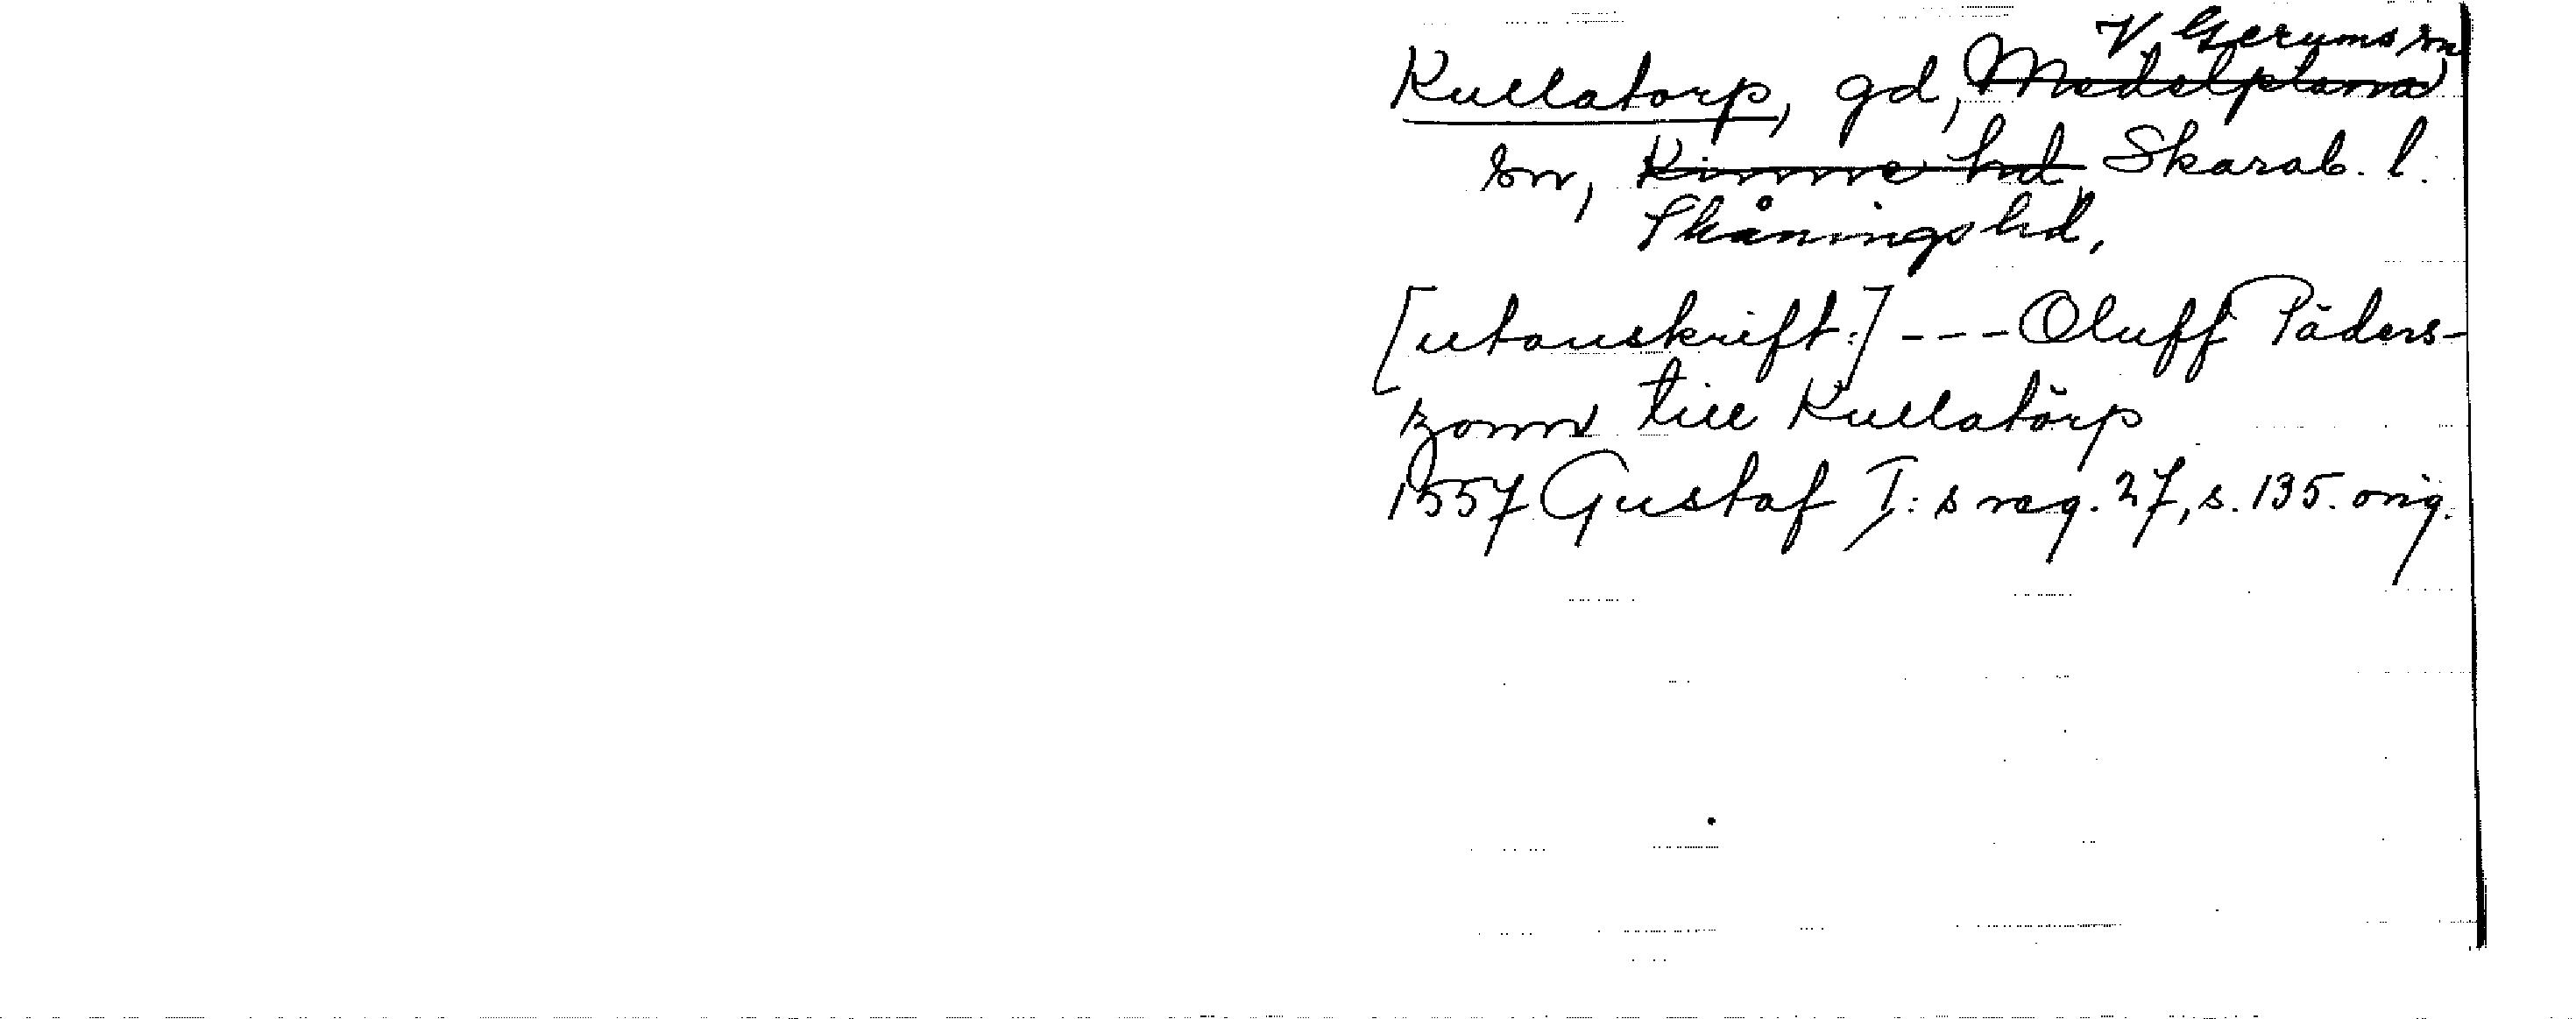 V Gerums sn
Kullatorp, gd, Medelplana
sn, Kinne hd, Skarab. l.
Skånings hd.
[utanskrift:] --- Oluff Päders-
zonn till Kullatörp
1557 Gustaf I:s reg. 27, s. 135. orig.